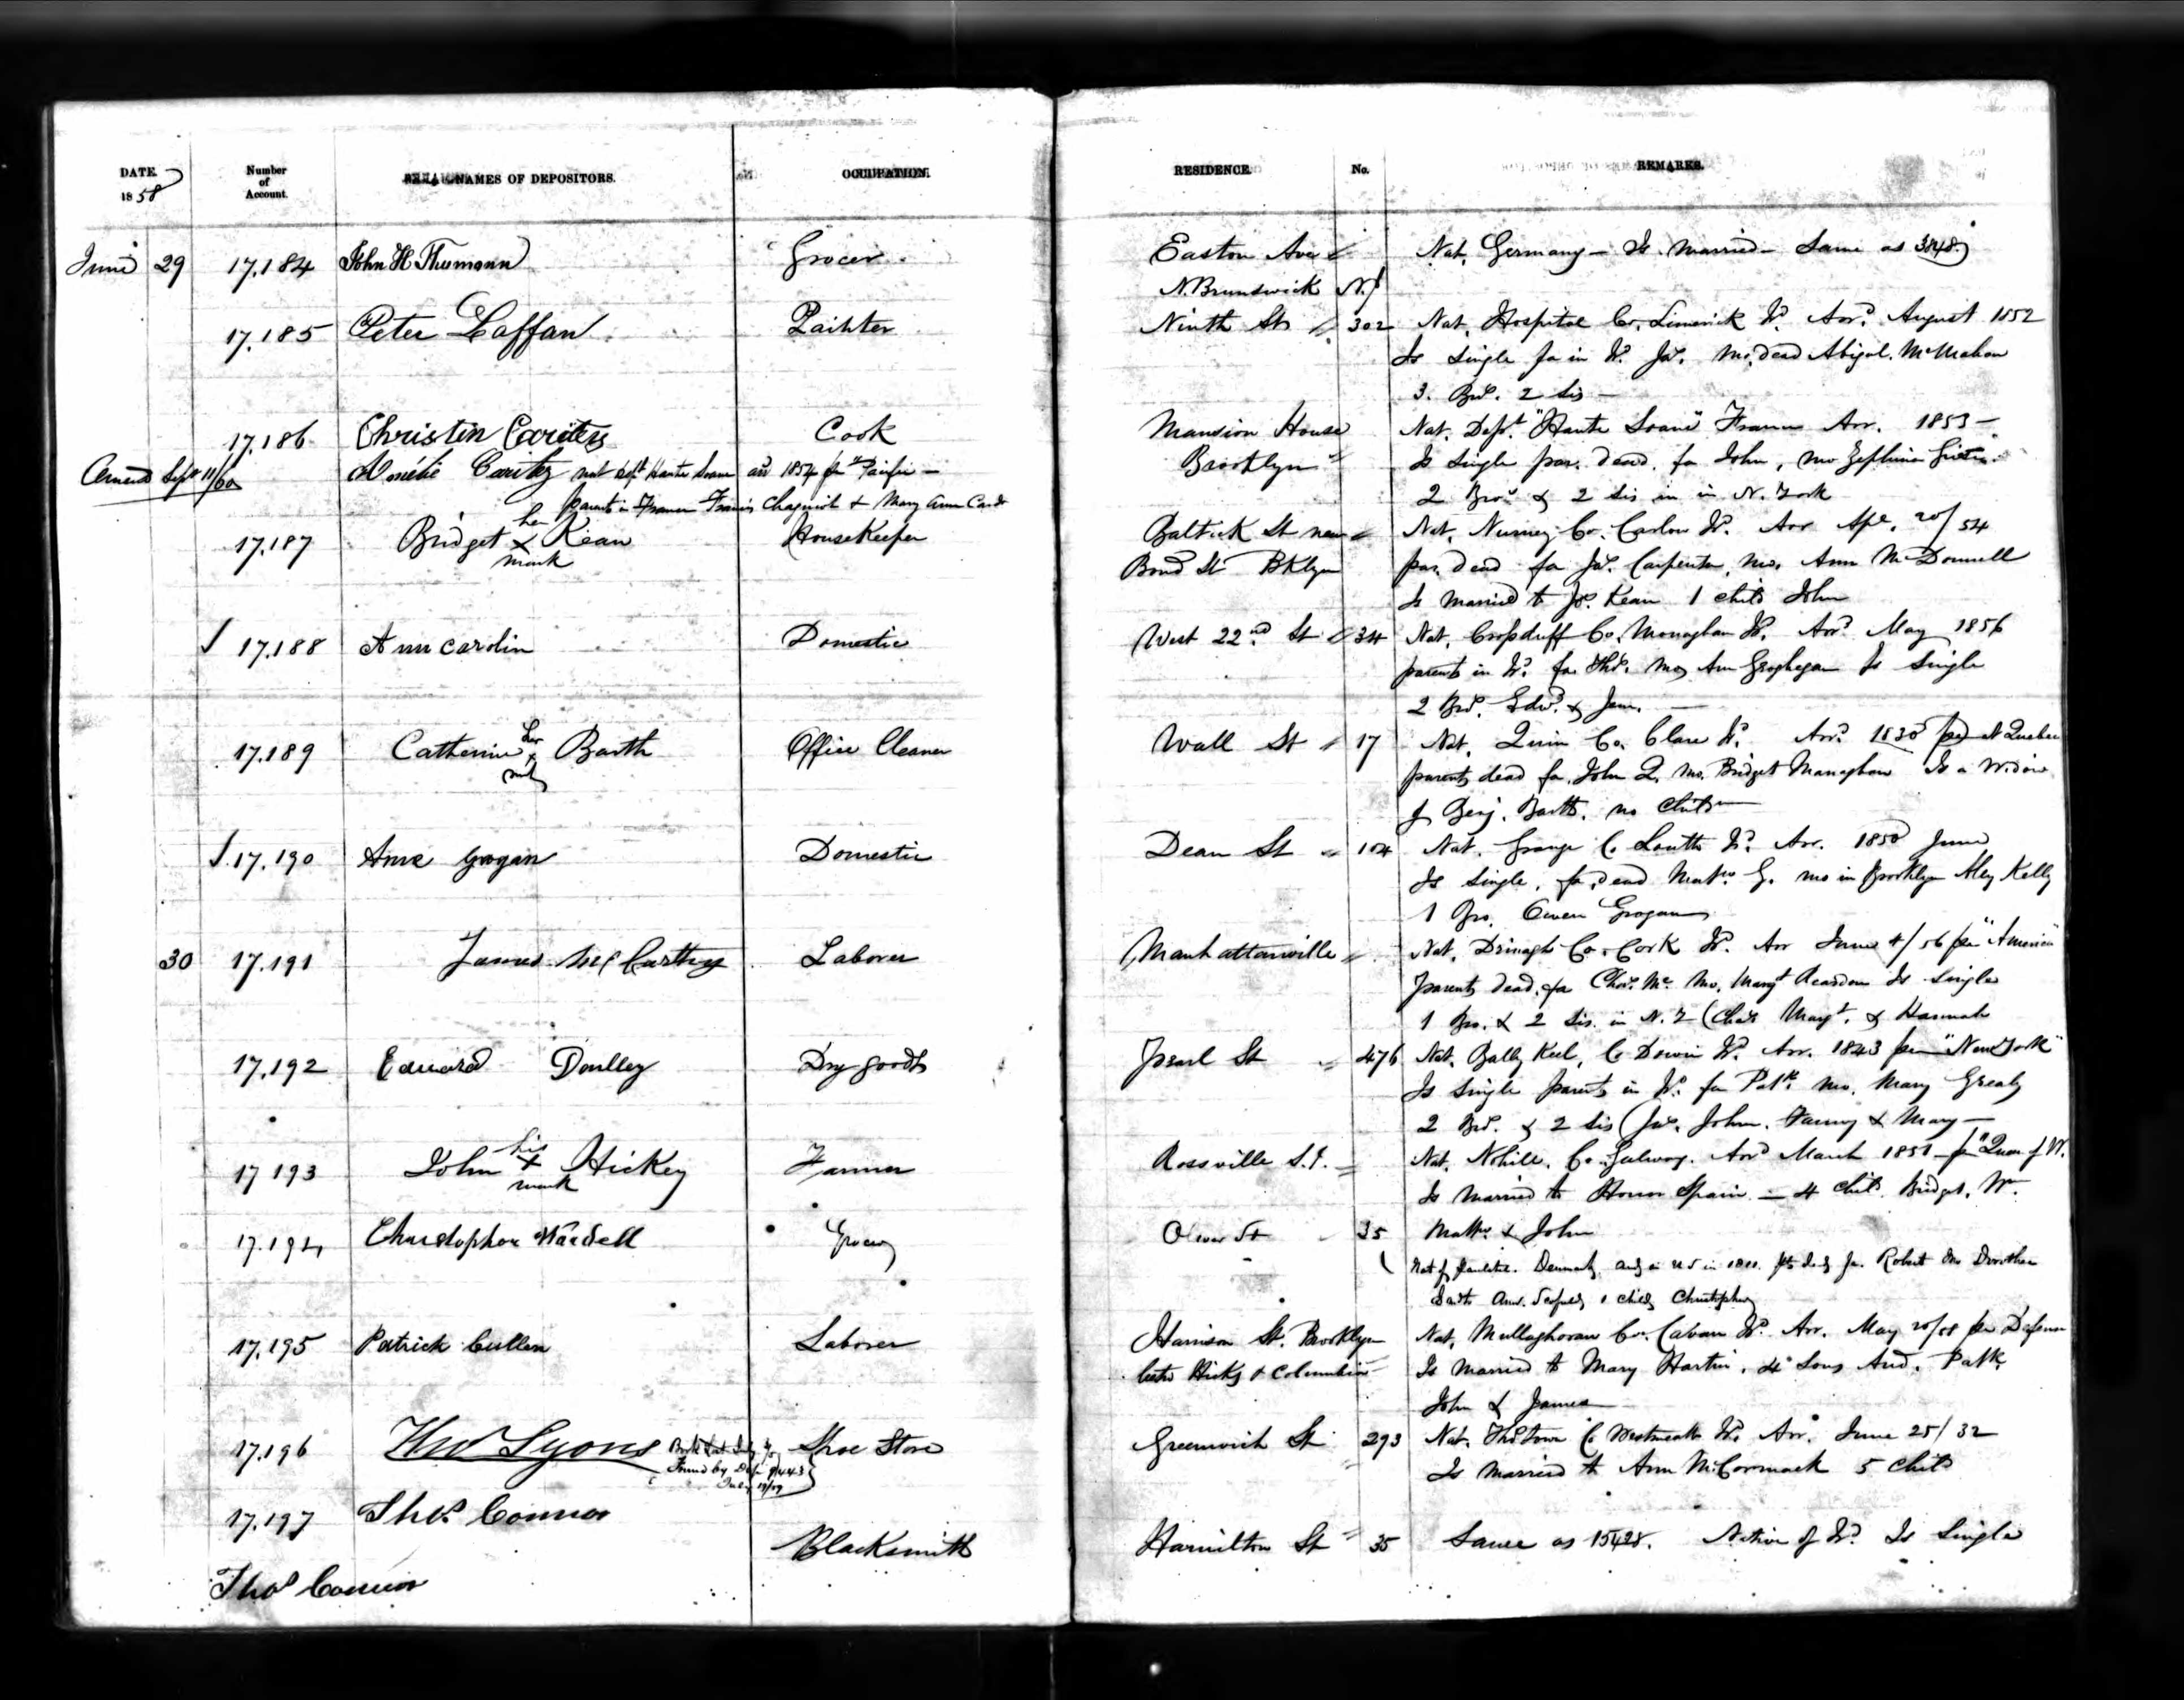 DATE. Number of Account. NAMES OF DEPOSITORS. OCCUPATION. RESIDENCE. No. REMARKS.
1858
June 29 17.184 John H Thumann Grocer Easton Ave Nat. Germany – Is married – Same as
N. Brunswick N.J
17.185 Peter Laffan Painter Ninth St 302 Nat. Hospital Co. Limerick Id. Arrd. August 1852
Is single fa in Id. Jas. mo. dead Abigal. McMahon
3. Bros. 2 Sis –
17.186 Christin Cook Mansion House Nat. Dept. "Haute Soane" France Arr. 1853 –
Brooklyn Is single par. dead. fa John, mo Zephina
2 Bros & 2 Sis in in N. York
Amend Sept 11/60 Améhé Caritez nat Dept Haute Soane arrd 1854 per "Pacific –
parents in France Francis & Mary Ann
17.187 Bridget her x mark Kean HouseKeeper Baltick St near Nat. Nurney Co. Carlow Id. Arr Apl. 20/54
Bond St Bklyn par. dead fa Jas. Carpenter, mo. Ann McDonnell
Is married to Jas. Kean 1 child John
17.188 Ann Carolin Domestic West 22nd St 34 Nat. Co. Monaghan Id. Arrd. May 1856
parents in Id. fa. Thos. mo Ann Geoghegan Is single
2 Bros. Edwd. & Jam.
17.189 Catherine her x mark Barth Office Cleaner Wall St 17 Nat. Quin Co. Clare Id. Arrd. 1830 per to Quebec
parents dead fa. John Q. mo. Bridget Managhan Is a Widow
of Benj. Barth. no Children
17.190 Ann Grogan Domestic Dean St 104 Nat. Grange Co Louth Id. Arr. 1850 June
Is single, fa. dead Matw. G. mo in Brooklyn Aley Kelly
1 Bro. Owen Grogan
30 17.191 James McCarthy Laborer Manhattanville Nat. Drinagh Co. Cork Id. Arr June 4/56 per "America"
parents dead. fa Chas. Mc. mo. Margt Reardon Is single
1 Bro. & 2 Sis. in N.Y (Chas Margt. & Hannah
17.192 Edward Dry goods Pearl St 476 Nat. Bally Keel, Co Down Id. Arr. 1843 per "New York"
Is single parents in Id. fa Patk. mo. Mary Grealy
2 Bros. & 2 Sis (Jas. John. Fanny & Mary –
17 193 John his x mark Hickey Farmer Rossville S.I. Nat. Nohill. Co. Galway. Arrd March 1851 per "Queen of W.
Is married to Honor Spain – 4 Chilt. Bridget. Wm.
Matw. & John
17.194 Christopher Wardell Grocer Oliver St 35 Nat of Denmark, in U S in 1811. fa. Robert mo Dorothea
1 child Christopher
17.195 Patrick Cullen Laborer Harrison St. Brooklyn Nat. Mullaghoran Co. Cavan Id. Arr. May 20/58 per
betw Hicks & Columbia Is married to Mary Hartin. 4 Sons And. Patk.
John & James
17.196 Thos Lyons Shoe Store Greenwich St 293 Nat. Co Westmeath Id. Arr. June 25/32
Found by Is married to Ann McCormack 5 Chilt
17.197 Thos. Connor Blacksmith Hamilton St 35 Same as 15428. Native of Id. Is Single
Thos Connor